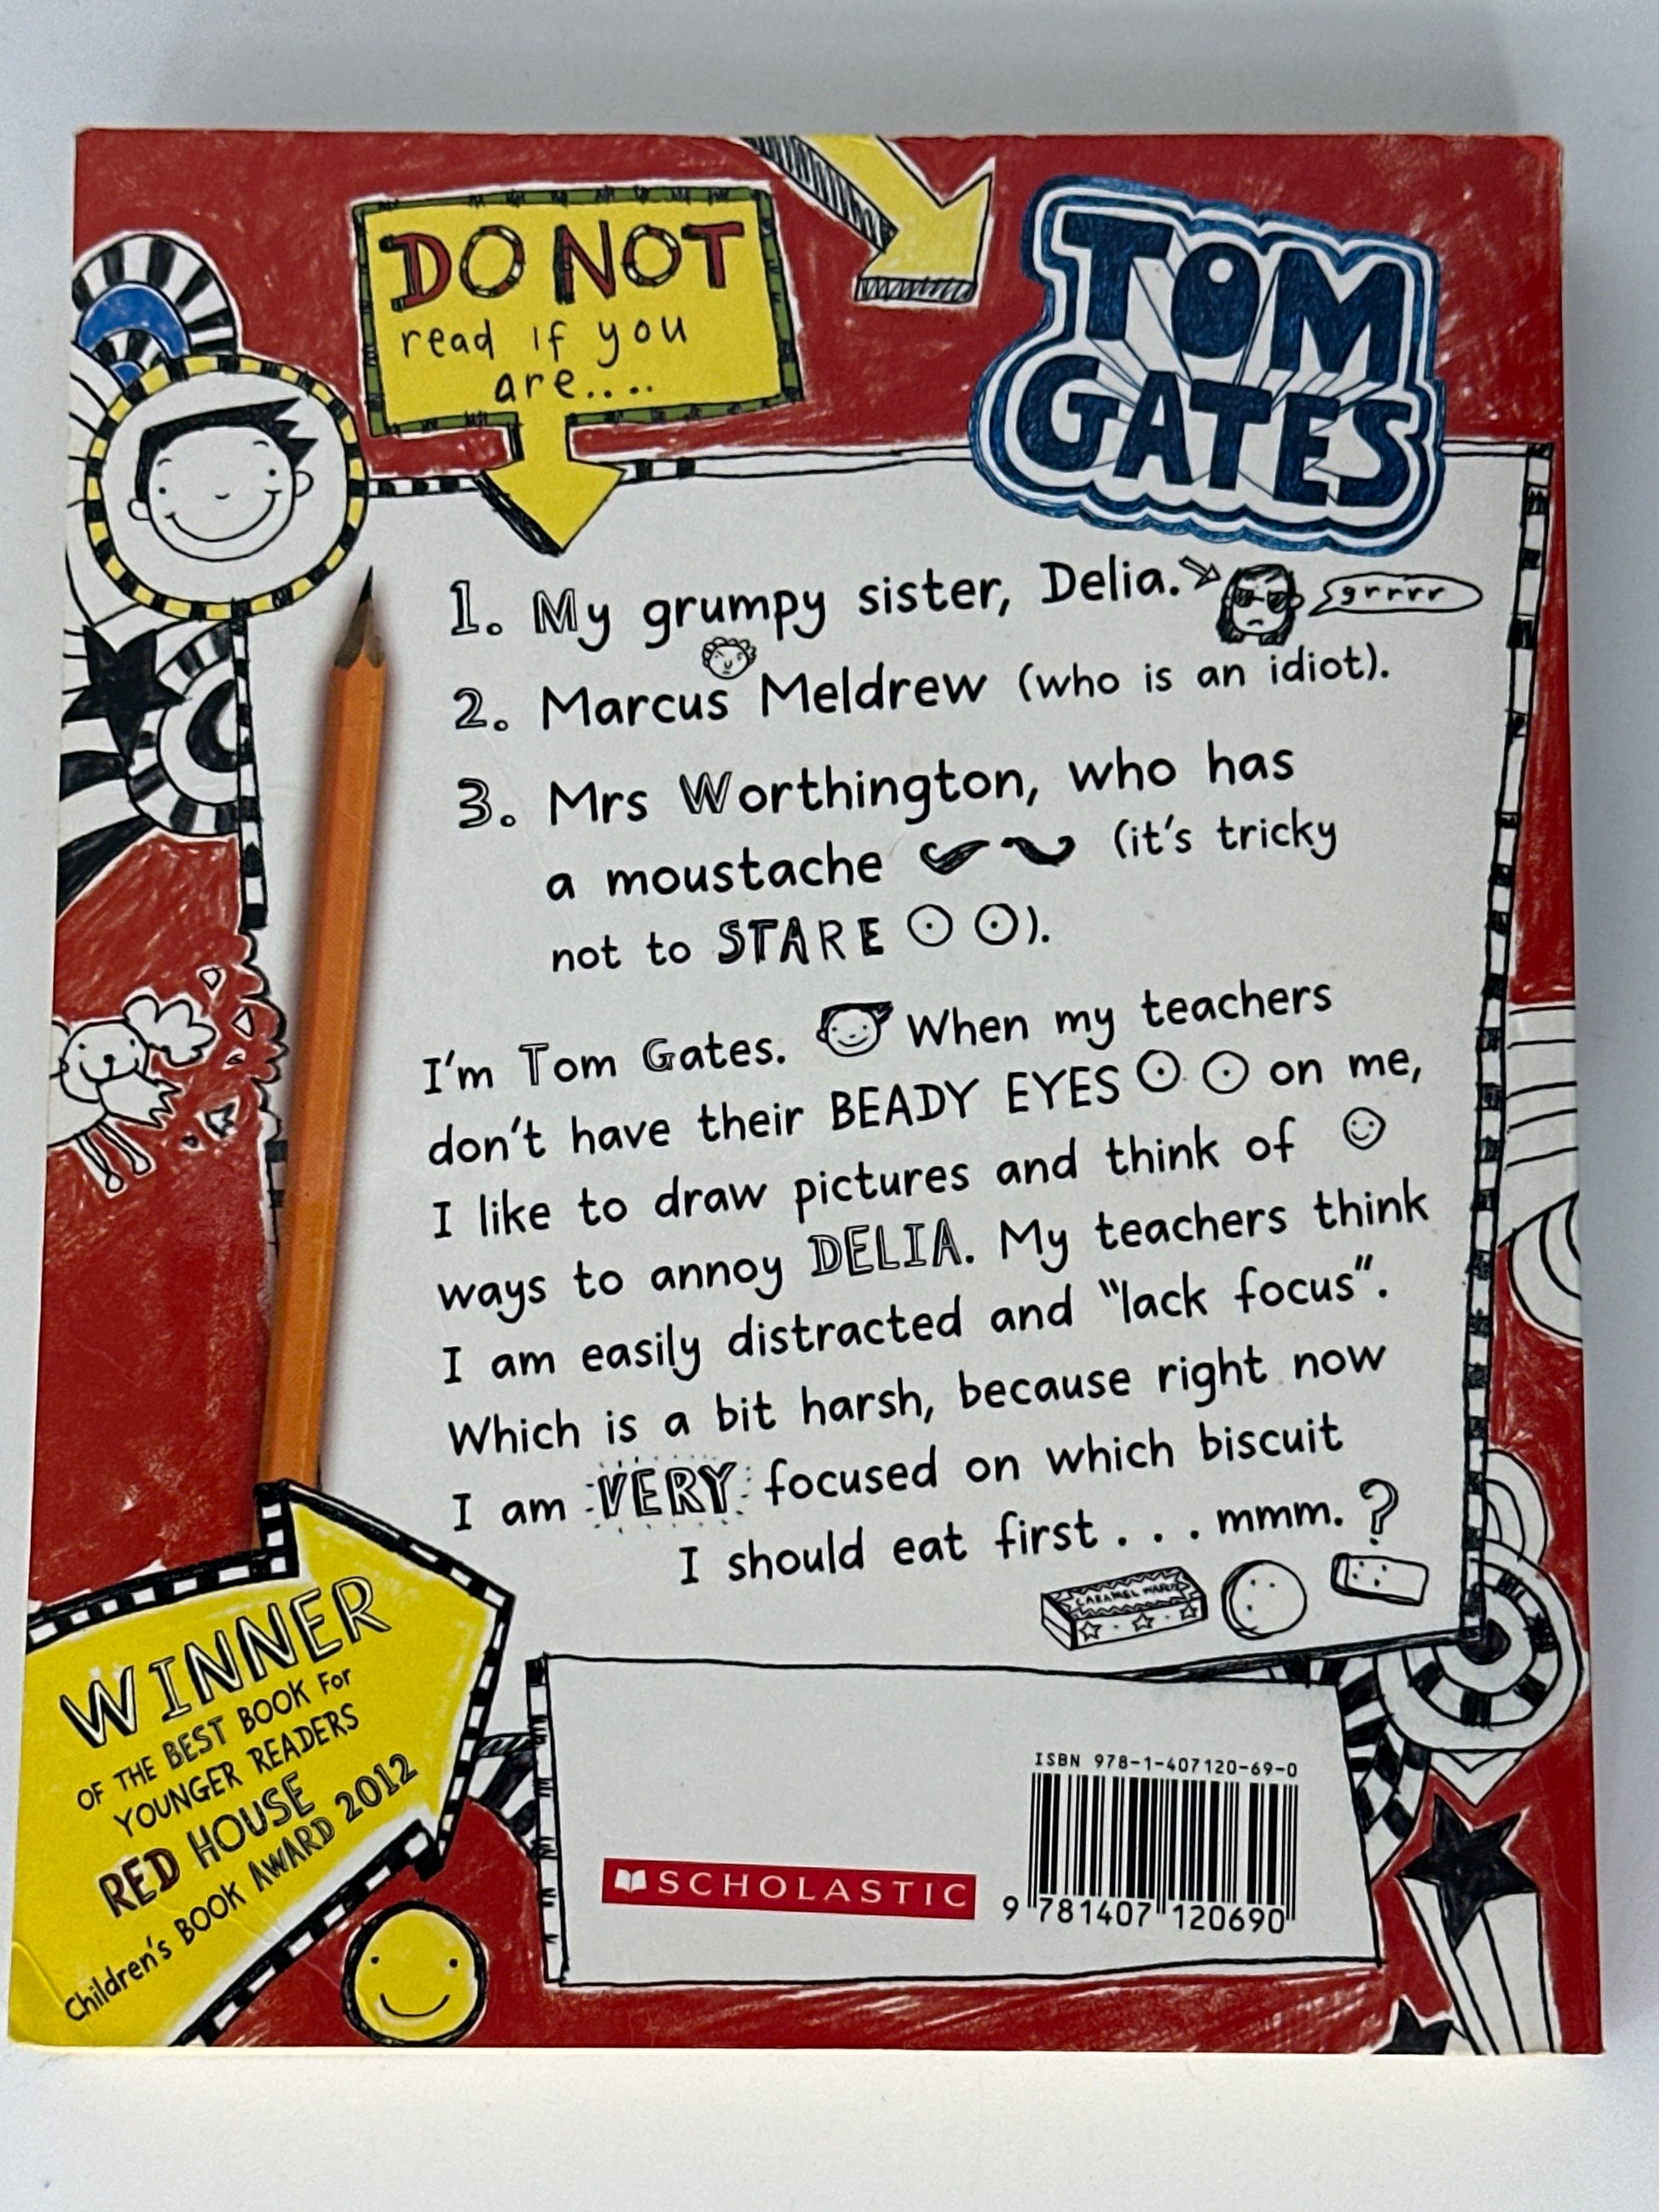 DO NOT
read if you
are....
TOM
GATES
1. My grumpy sister, Delia.
grrrr
2. Marcus Meldrew (who is an idiot).
3. Mrs Worthington, who has
a moustache (it's tricky
not to STARE).
I'm Tom Gates. When my teachers
don't have their BEADY EYES on me,
I like to draw pictures and think of
ways to annoy DELIA. My teachers think
I am easily distracted and "lack focus".
Which is a bit harsh, because right now
I am VERY focused on which biscuit
I should eat first . . . mmm. ?
CARAMEL WAFER
WINNER
OF THE BEST BOOK For
YOUNGER READERS
RED HOUSE
Children's BOOK AWARD 2012
ISBN 978-1-407120-69-0
SCHOLASTIC
9 781407 120690